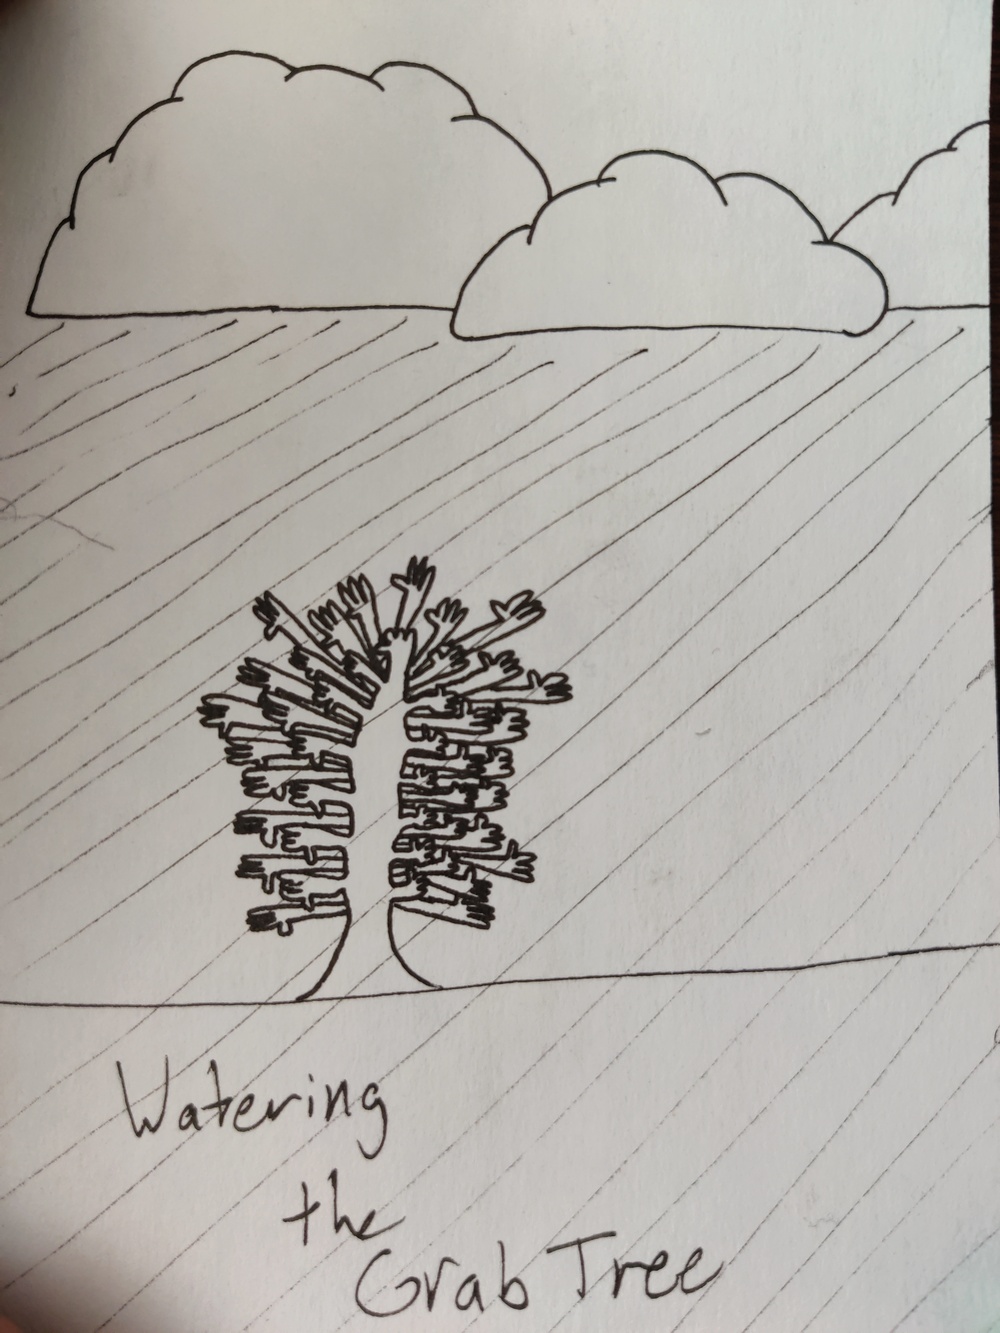 Watering
the
Grab Tree